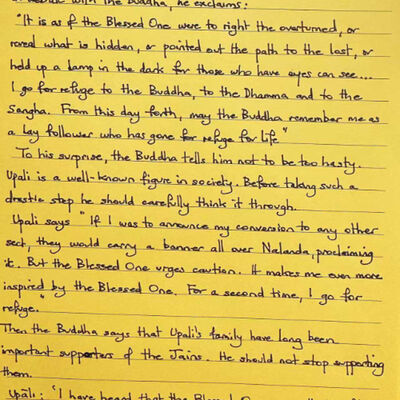 with the Buddha, he exclaims:
"It is as if the Blessed One were to right the overturned, or
reveal what is hidden, or pointed out the path to the lost, or
held up a lamp in the dark for those who have eyes can see...
I go for refuge to the Buddha, to the Dhamma and to the
Sangha. From this day forth, may the Buddha remember me as
a lay follower who has gone for refuge for life"
To his surprise, the Buddha tells him not to be too hasty.
Upali is a well-known figure in society. Before taking such a
drastic step he should carefully think it through.
Upali says "If I was to announce my conversion to any other
sect, they would carry a banner all over Nalanda, proclaiming
it. But the Blessed One urges caution. It makes me even more
inspired by the Blessed One. For a second time, I go for
refuge."
Then the Buddha says that Upali's family have long been
important supporters of the Jains. He should not stop supporting
them.
Upāli: "I have heard that the